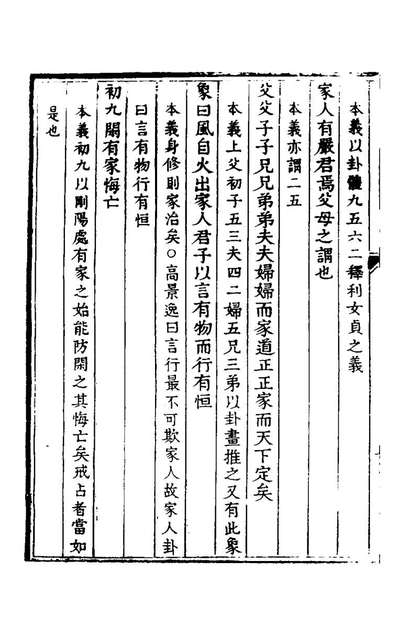 本義以卦體九五六二釋利女貞之義
家人有嚴君焉父母之謂也
本義亦謂二五
父父子子兄兄弟弟夫夫婦婦而家道正正家而天下定矣
本義上父初子五三夫四二婦五兄三弟以卦畫推之又有此象
象曰風自火出家人君子以言有物而行有恒
本義身修則家治矣○高景逸曰言行最不可欺家人故家人卦
曰言有物行有恒
初九閑有家悔亡
本義初九以剛陽處有家之始能防閑之其悔亡矣戒占者當如
是也